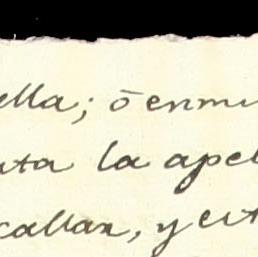 ella; ō enmi
uta la apel
callar, y est